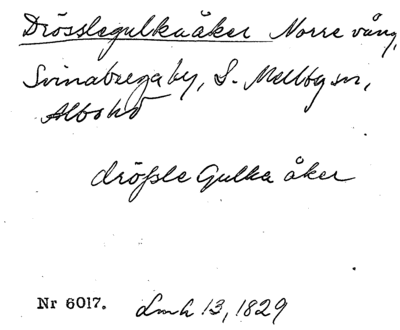 Drösslegulkaåker Norre vång,
Svinabergaby, S. Mellby sn,
Albo hd
dröſsle Gulka åker
Nr 6017. Lmh 13, 1829